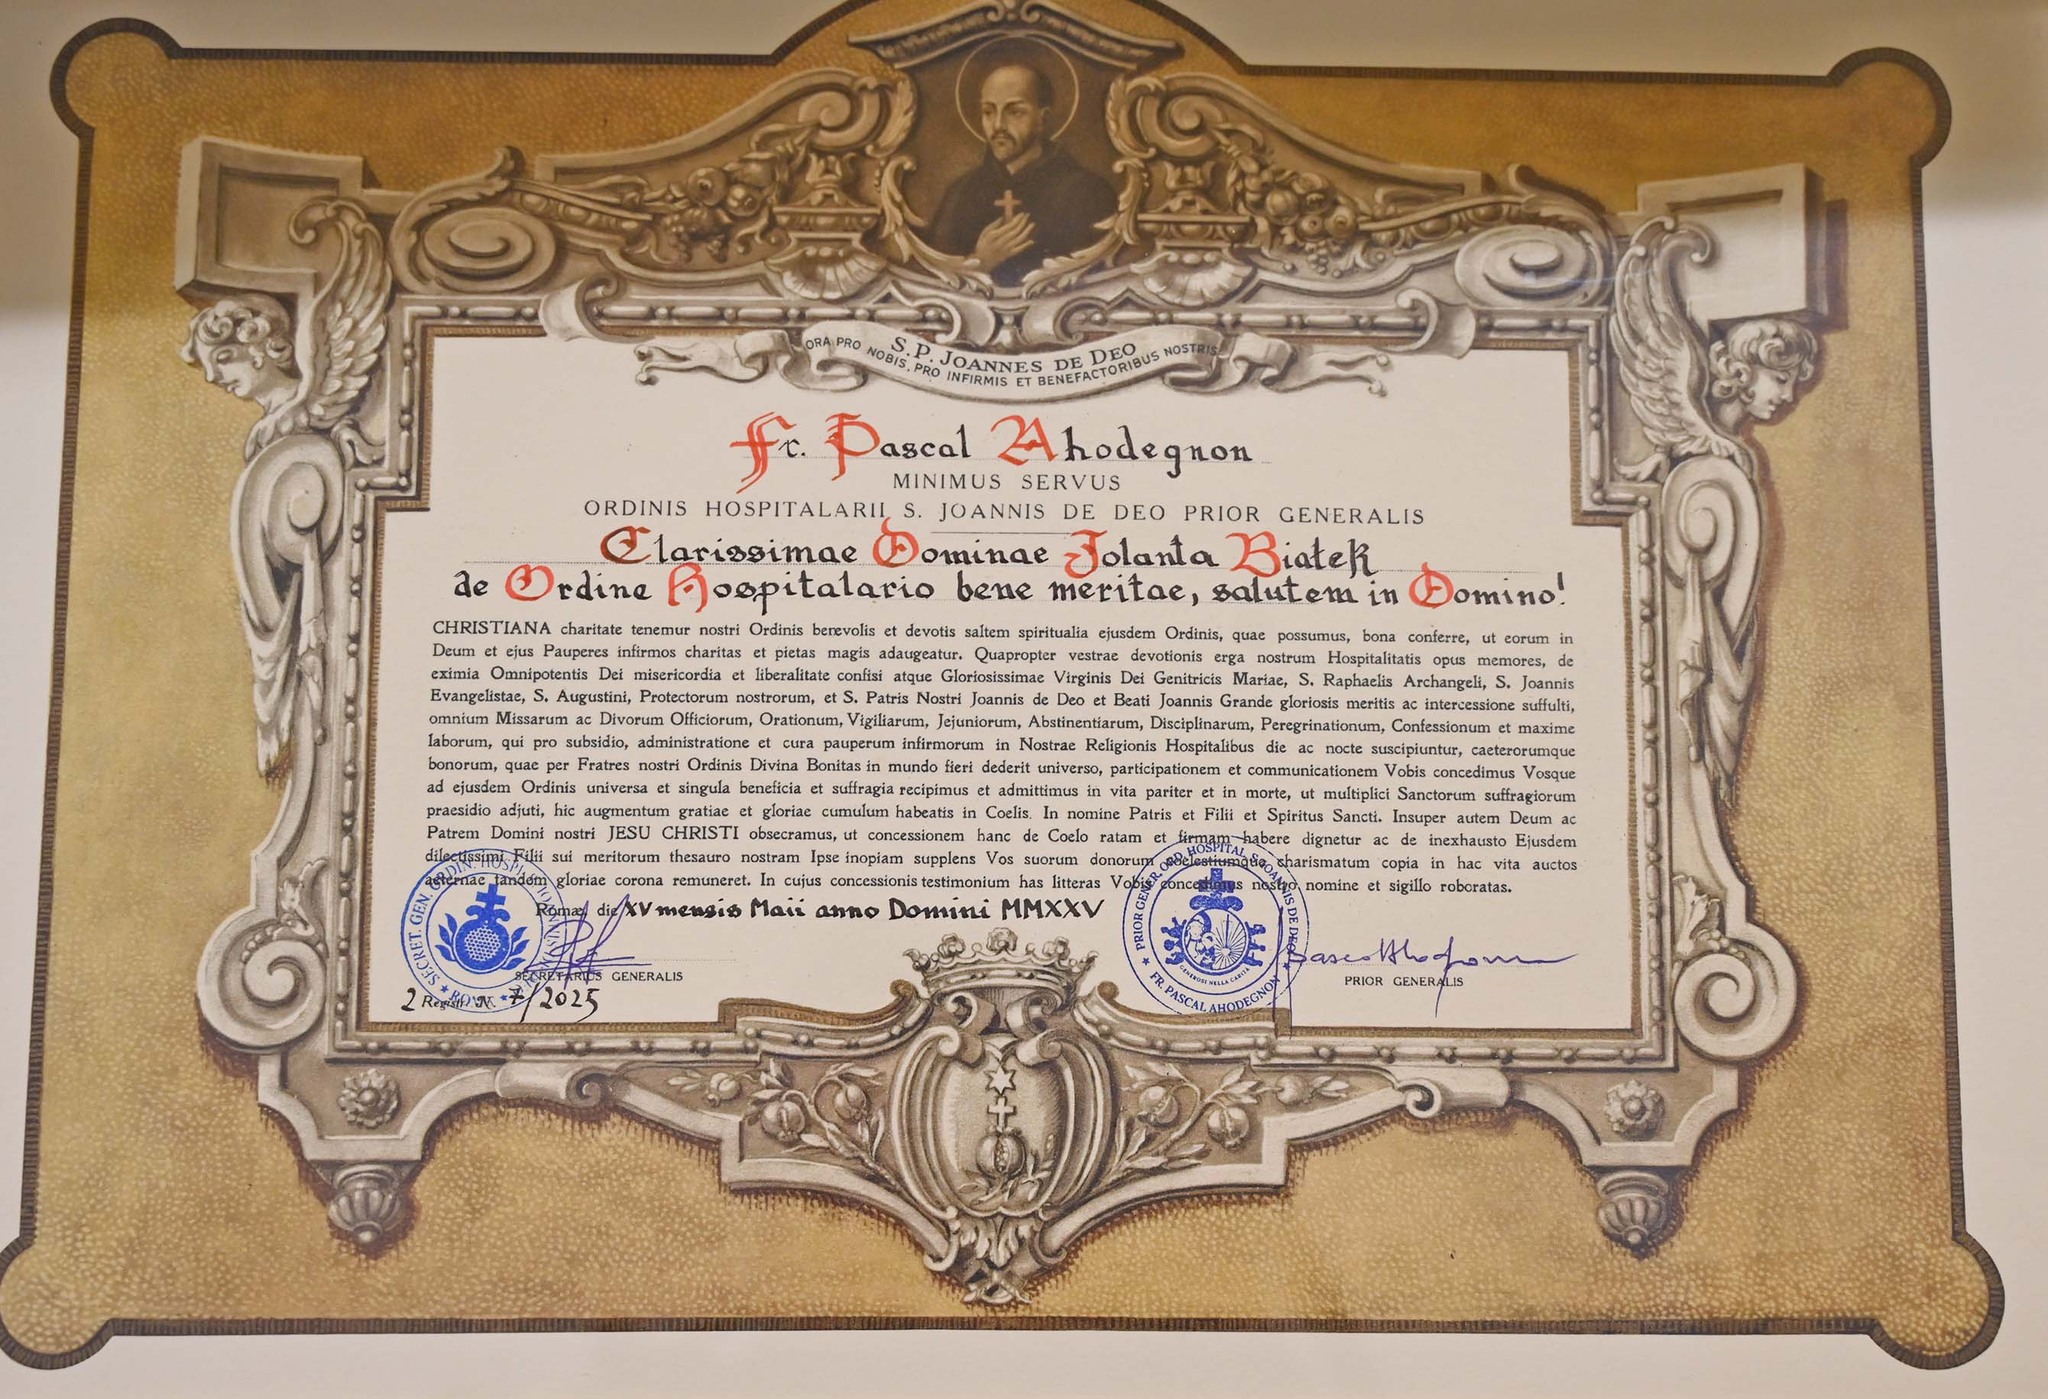 S. P. JOANNES DE DEO
ORA PRO NOBIS, PRO INFIRMIS ET BENEFACTORIBUS NOSTRIS
Fr. Pascal Ahodegnon
MINIMUS SERVUS
ORDINIS HOSPITALARII S. JOANNIS DE DEO PRIOR GENERALIS
Clarissimae Dominae Jolanta Białek
de Ordine Hospitalario bene meritae, salutem in Domino!
CHRISTIANA charitate tenemur nostri Ordinis benevolis et devotis saltem spiritualia ejusdem Ordinis, quae possumus, bona conferre, ut eorum in
Deum et ejus Pauperes infirmos charitas et pietas magis adaugeatur. Quapropter vestrae devotionis erga nostrum Hospitalitatis opus memores, de
eximia Omnipotentis Dei misericordia et liberalitate confisi atque Gloriosissimae Virginis Dei Genitricis Mariae, S. Raphaelis Archangeli, S. Joannis
Evangelistae, S. Augustini, Protectorum nostrorum, et S. Patris Nostri Joannis de Deo et Beati Joannis Grande gloriosis meritis ac intercessione suffulti,
omnium Missarum ac Divorum Officiorum, Orationum, Vigiliarum, Jejuniorum, Abstinentiarum, Disciplinarum, Peregrinationum, Confessionum et maxime
laborum, qui pro subsidio, administratione et cura pauperum infirmorum in Nostrae Religionis Hospitalibus die ac nocte suscipiuntur, caeterorumque
bonorum, quae per Fratres nostri Ordinis Divina Bonitas in mundo fieri dederit universo, participationem et communicationem Vobis concedimus Vosque
ad ejusdem Ordinis universa et singula beneficia et suffragia recipimus et admittimus in vita pariter et in morte, ut multiplici Sanctorum suffragiorum
praesidio adjuti, hic augmentum gratiae et gloriae cumulum habeatis in Coelis. In nomine Patris et Filii et Spiritus Sancti. Insuper autem Deum ac
Patrem Domini nostri JESU CHRISTI obsecramus, ut concessionem hanc de Coelo ratam et firmam habere dignetur ac de inexhausto Ejusdem
dilectissimi Filii sui meritorum thesauro nostram Ipse inopiam supplens Vos suorum donorum coelestiumque charismatum copia in hac vita auctos
aeternae tandem gloriae corona remuneret. In cujus concessionis testimonium has litteras Vobis concedimus nostro nomine et sigillo roboratas.
Romae, die XV mensis Maii anno Domini MMXXV
SECRET. GEN. ORDIN. HOSPIT. ROMA
PRIOR GENER. ORD. HOSPITAL. S. JOANNIS DE DEO
FR. PASCAL AHODEGNON
SECRETARIUS GENERALIS
Pascal Ahodegnon
PRIOR GENERALIS
2 Registr. N. 7/2025